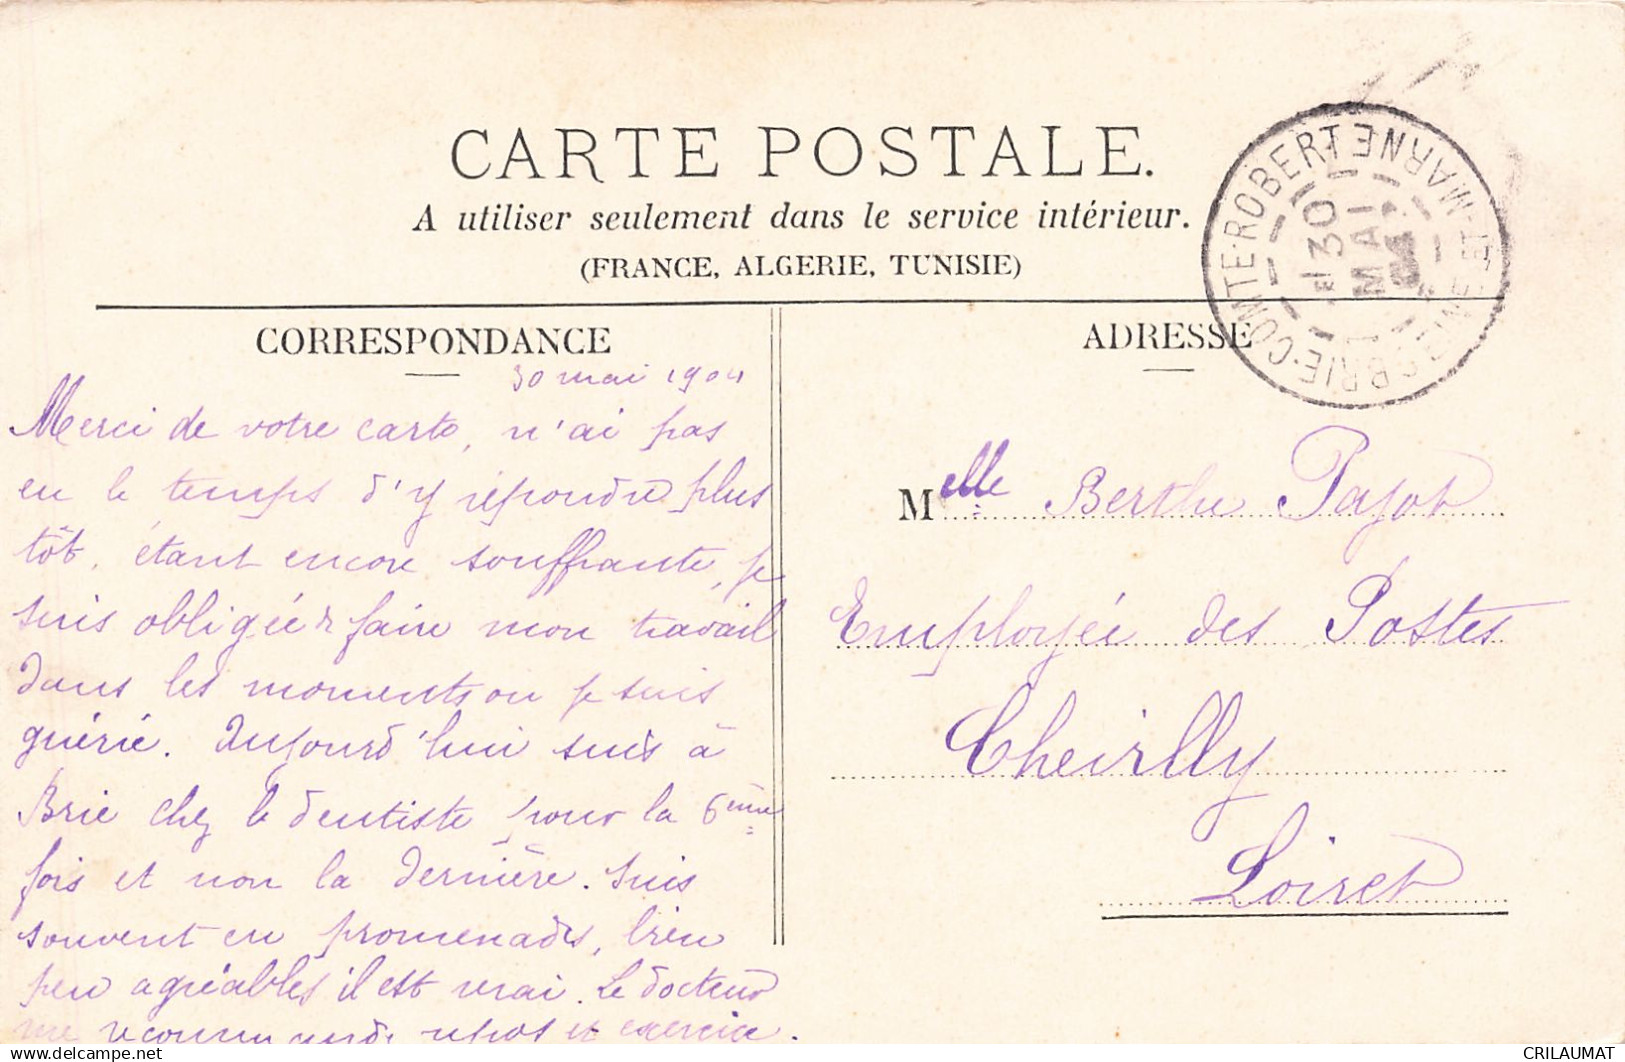 CARTE POSTALE.
A utiliser seulement dans le service intérieur.
(FRANCE, ALGERIE, TUNISIE)
BRIE-COMTE-ROBERT
SEINE-ET-MARNE
30
MAI
04
CORRESPONDANCE
ADRESSE
30 mai 1904
Merci de votre carte, n'ai pas
eu le temps d'y répondre plus
tôt, étant encore souffrante, je
suis obligée de faire mon travail
dans les moments ou je suis
guérie. Aujourd'hui suis à
Brie chez le dentiste pour la 6ème
fois et non la dernière. Suis
souvent en promenades, bien
peu agréables il est vrai. Le docteur
me recommande repos et exercice.
Melle Berthe Pajot
Employée des Postes
Cheirlly
Loiret
CRILAUMAT